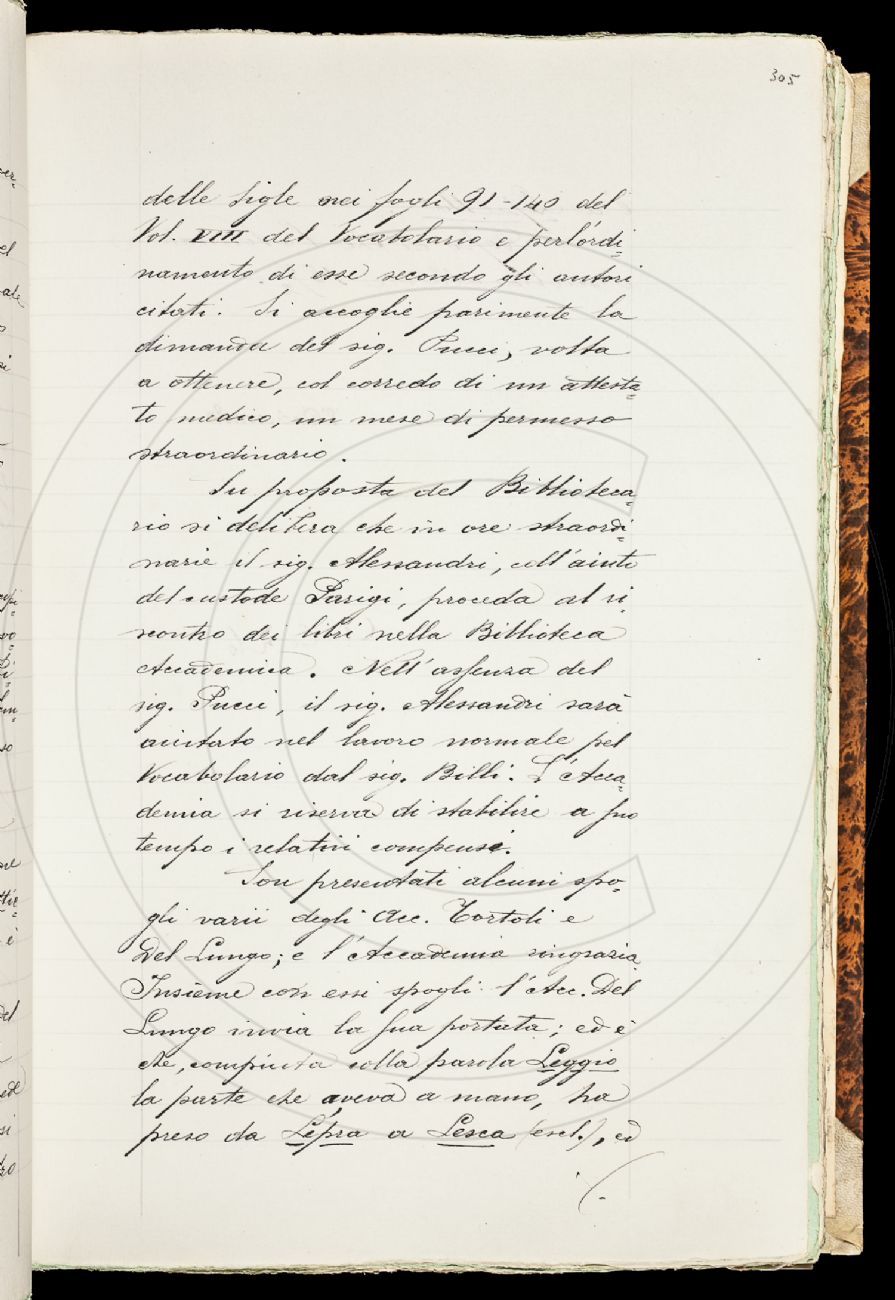 305
delle sigle nei fogli 91-140 del
Vol. VIII del Vocabolario e per l'ordi=
namento di esse secondo gli autori
citati. Si accoglie parimente la
dimanda del sig. Pucci, volta
a ottenere, col corredo di un attesta=
to medico, un mese di permesso
straordinario.
Su proposta del Biblioteca=
rio si delibera che in ore straordi=
narie il sig. Alessandri, coll'aiuto
del custode Parigi, proceda al ri
scontro dei libri nella Biblioteca
Accademica. Nell'assenza del
sig. Pucci, il sig. Alessandri sarà
aiutato nel lavoro normale pel
Vocabolario dal sig. Billi. L'Acca=
demia si riserva di stabilire a suo
tempo i relativi compensi.
Son presentati alcuni spo=
gli varii degli Acc. Tortoli e
Del Lungo; e l'Accademia ringrazia.
Insieme con essi spogli l'Acc. Del
Lungo invia la sua portata; ed è
che, compiuta colla parola Leggio
la parte che aveva a mano, ha
preso da Lepra a Lesca (escl.), ed